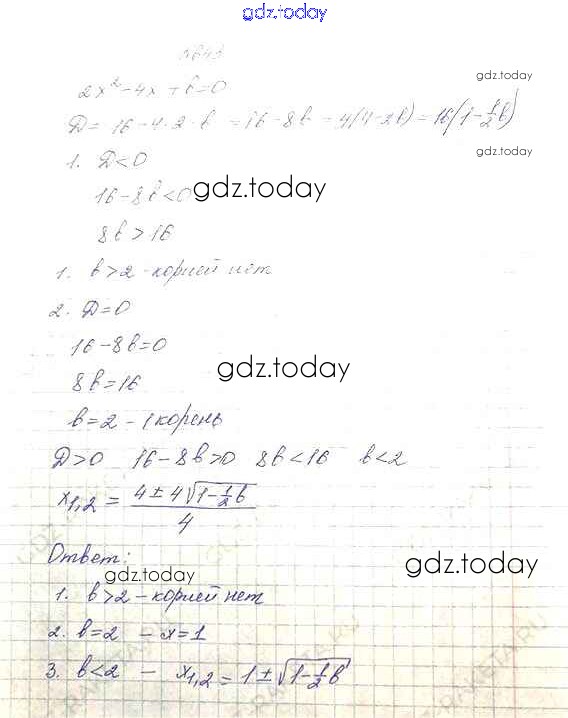 gdz.today
№643
2x² - 4x + b = 0
gdz.today
D = 16 - 4·2·b = 16 - 8b = 4(4-2b) = 16(1 - 1/2b)
1. D<0
gdz.today
16 - 8b < 0
gdz.today
8b > 16
1. b>2 - корней нет
2. D=0
16 - 8b = 0
gdz.today
8b = 16
b = 2 - 1 корень
D>0 16-8b>0 8b<16 b<2
x1,2 = (4 ± 4√(1 - 1/2b))/4
Ответ:
gdz.today
gdz.today
1. b>2 - корней нет
2. b=2 - x=1
3. b<2 - x1,2 = 1 ± √(1 - 1/2b)